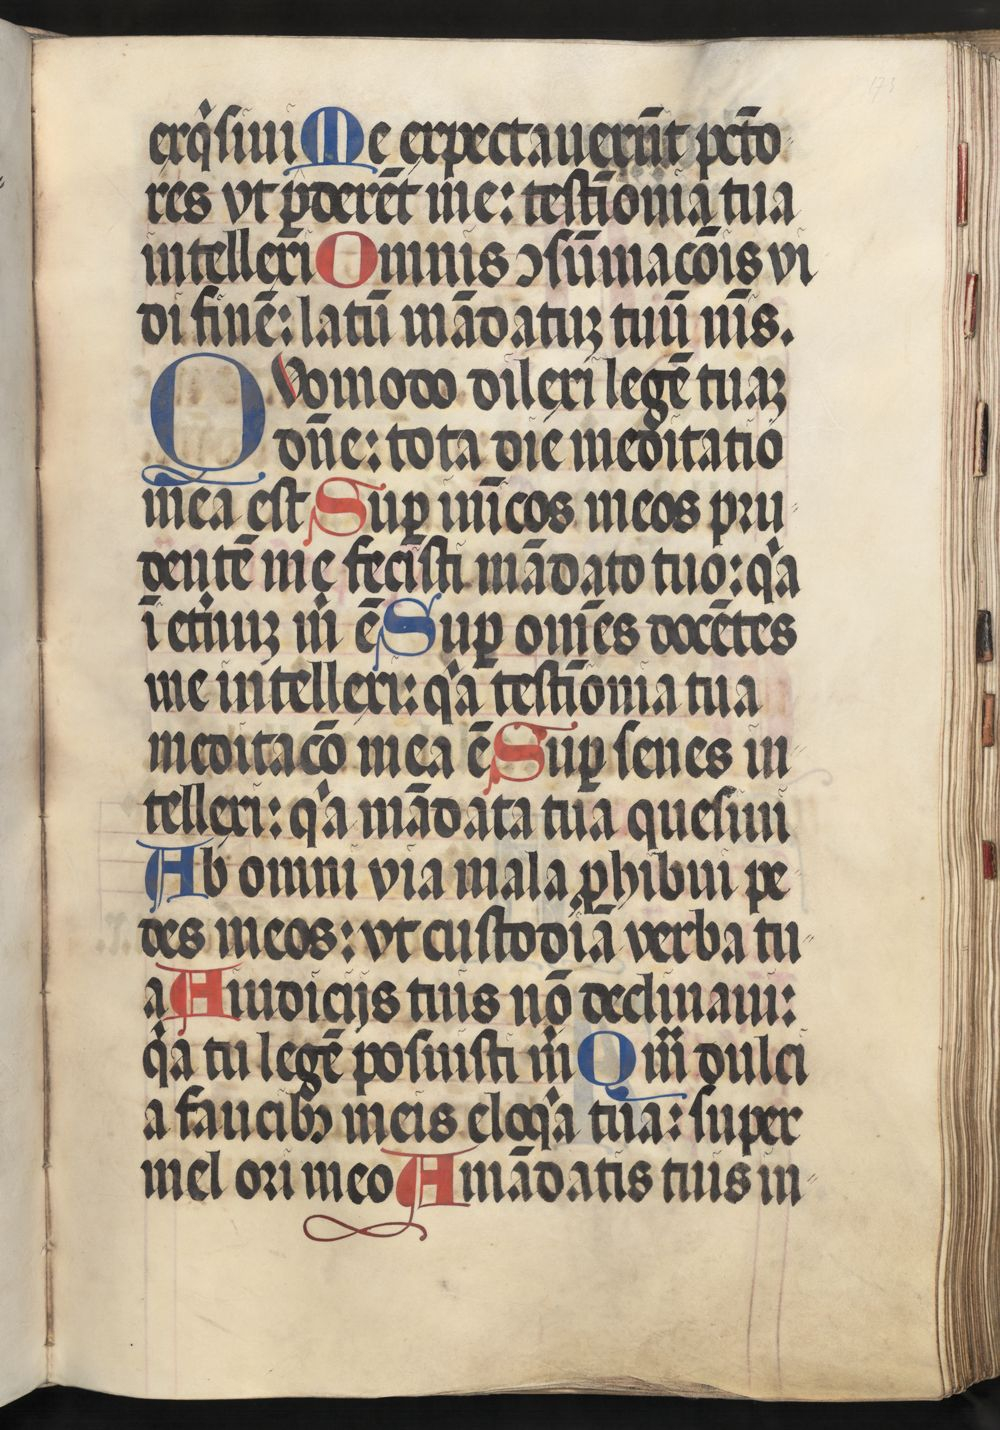 173
exq̇siui Me expectauerūt pctō-
res vt ꝑderēt me: testīonia tua
intellexi Omnis ↄsūmacōis vi
di finē: latū mādatuꝫ tuū nīs.
Quomodo dilexi legē tuaꝫ
dn̄e: tota die meditatio
mea est Suꝑ inīcos meos pru-
dentē me fecisti mādato tuo: qꝛa
ī eternuꝫ m̍ ē Suꝑ om̄es docētes
me intellexi: qꝛa testīonia tua
meditacō mea ē Suꝑ senes in-
tellexi: qꝛa mādata tua quesiui
Ab omni via mala ꝓhibui pe-
des meos: vt custodiā verba tu-
a A iudicijs tuis nō declinaui:
qꝛa tu legē posuisti m̍ Qm̄ dulci
a faucibꝫ meis eloq̇a tua: super
mel ori meo A mādatis tuis in-